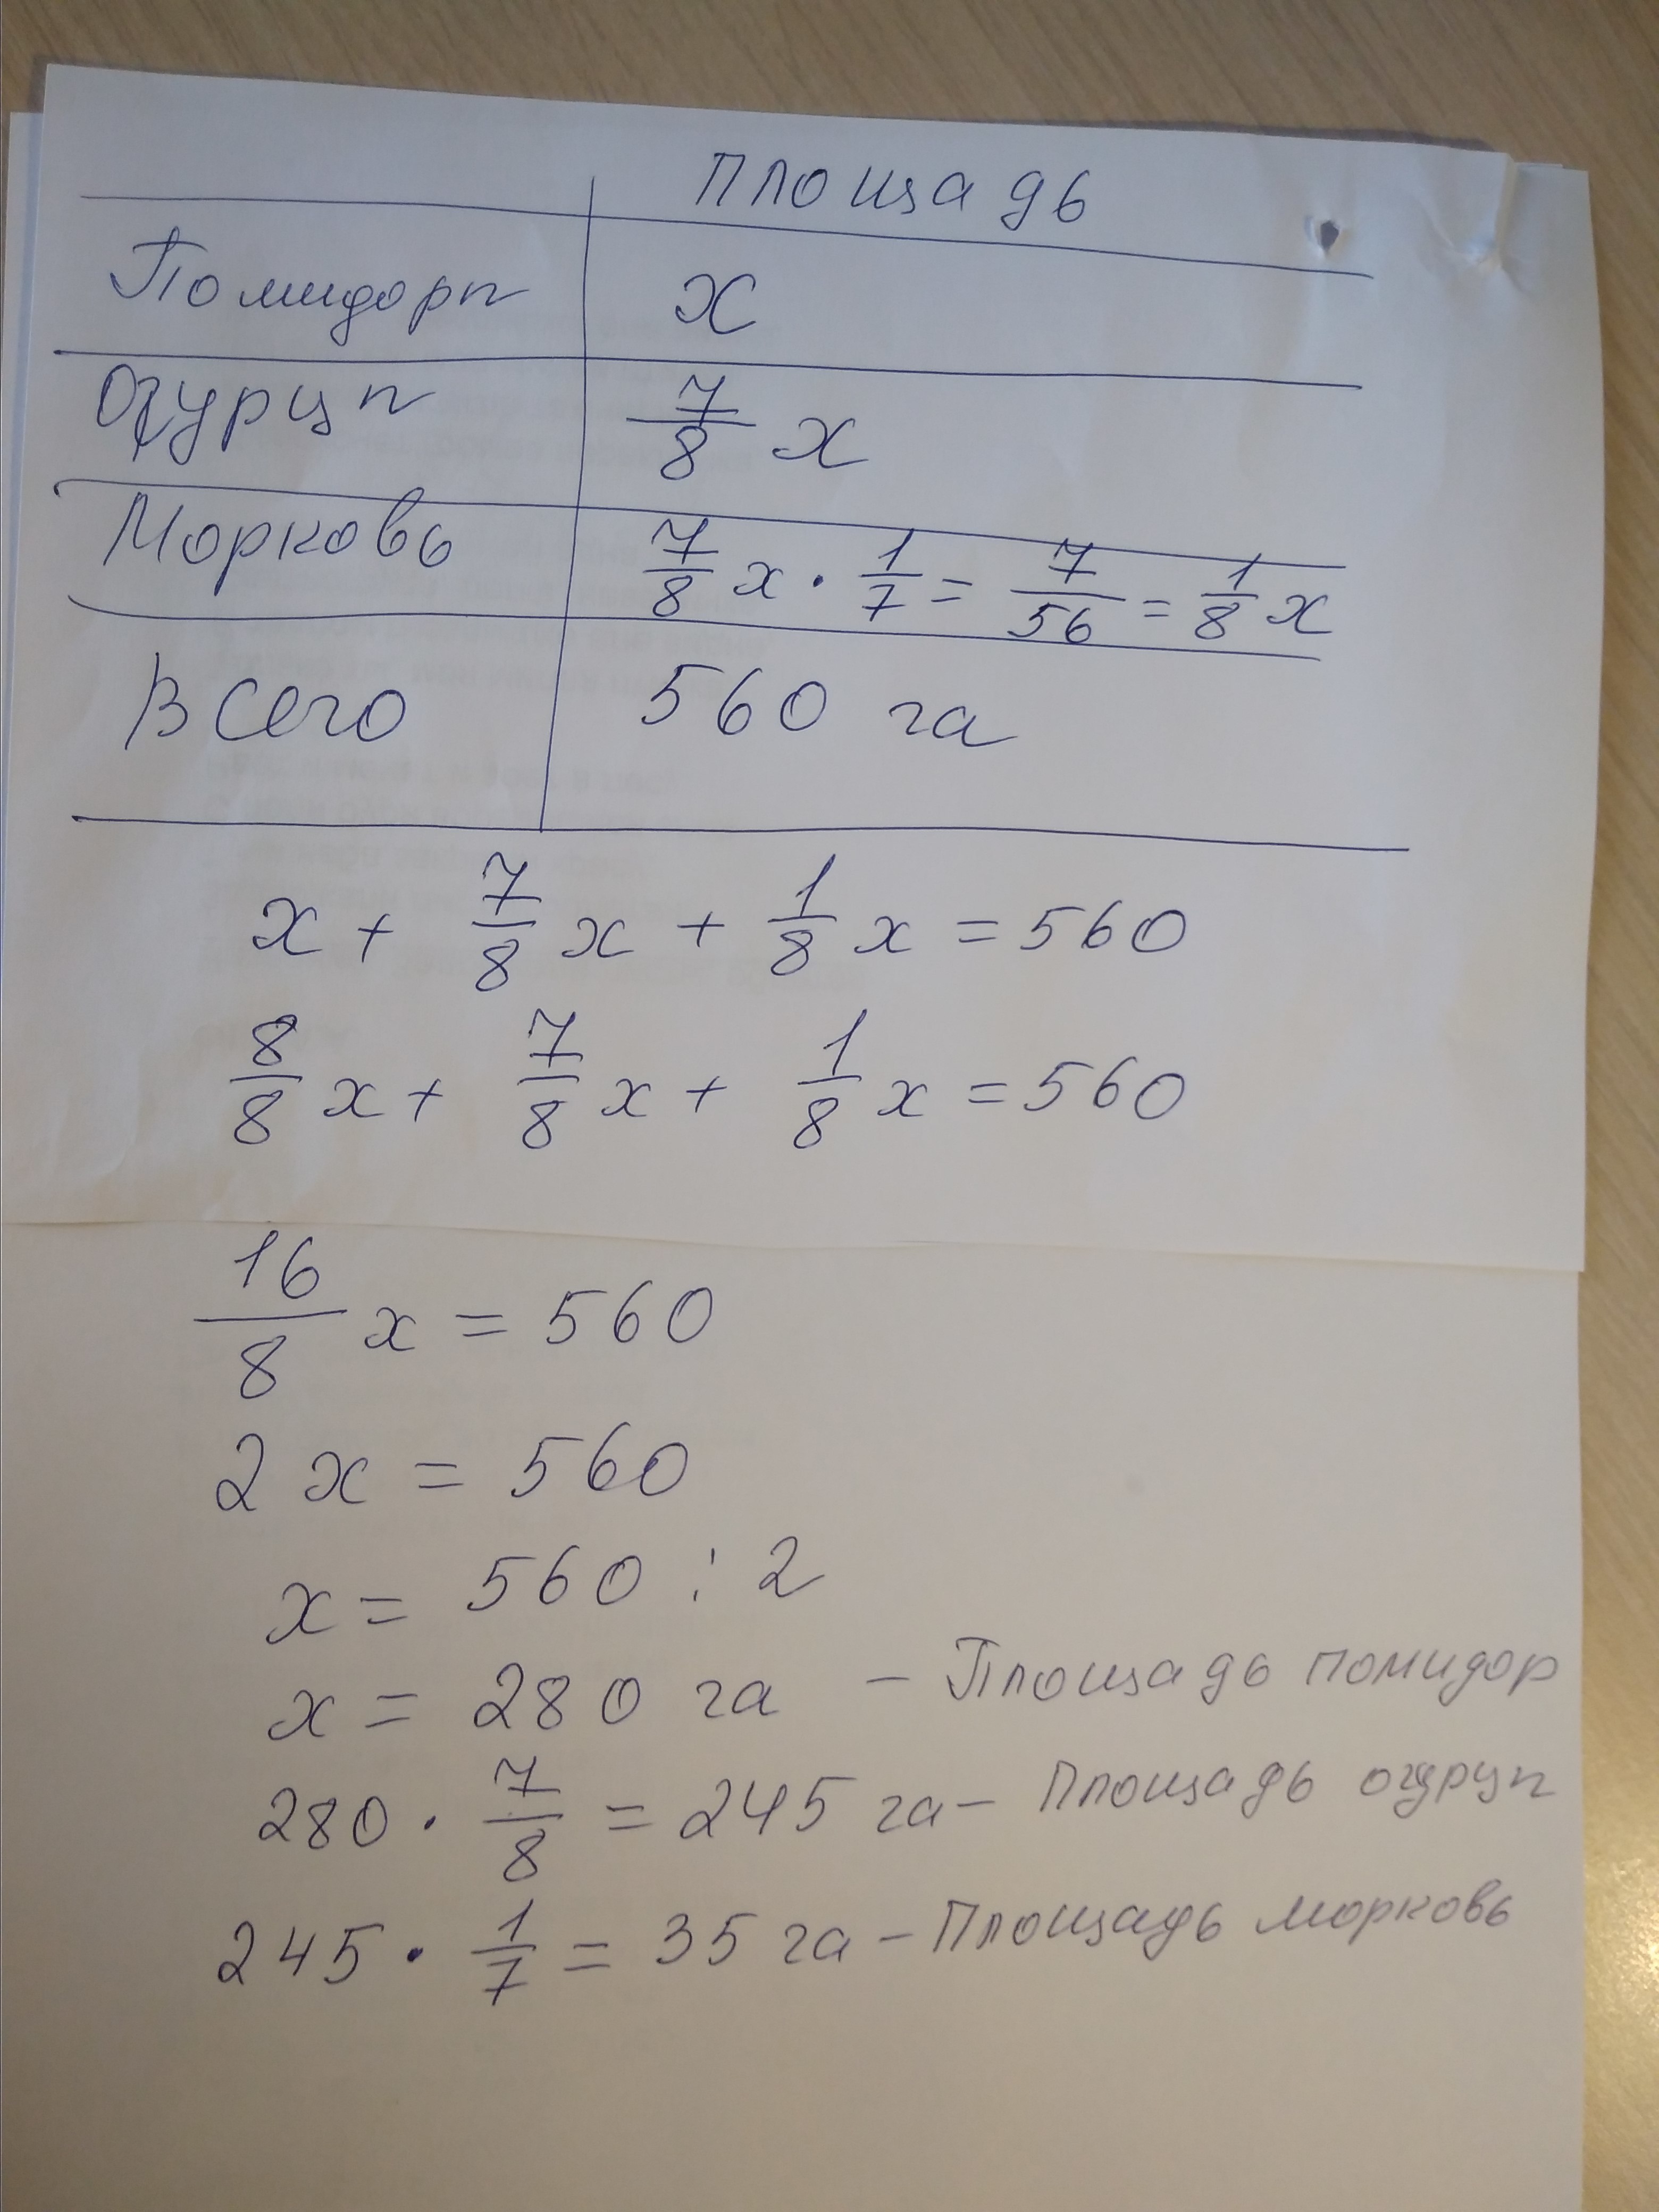 Площадь
Помидоры x
Огурцы 7/8 x
Морковь 7/8 x · 1/7 = 7/56 = 1/8 x
Всего 560 га
x + 7/8 x + 1/8 x = 560
8/8 x + 7/8 x + 1/8 x = 560
16/8 x = 560
2 x = 560
x = 560 : 2
x = 280 га – Площадь помидор
280 · 7/8 = 245 га – Площадь огурцы
245 · 1/7 = 35 га – Площадь морковь